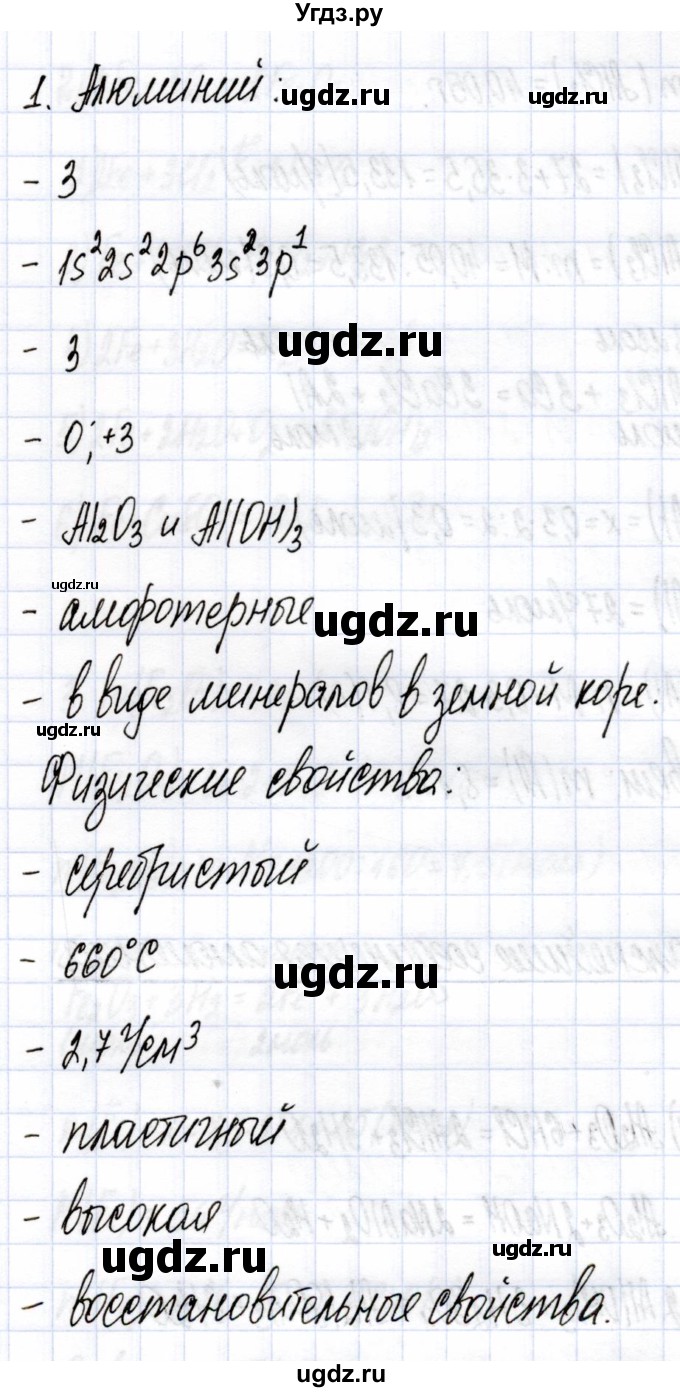 Угдз.ру
1. Алюминий: ugdz.ru ugdz.ru
- 3
- 1s²2s²2p⁶3s²3p¹
- 3 ugdz.ru
- 0; +3
- Al₂O₃ и Al(OH)₃
ugdz.ru
- амфотерные ugdz.ru
- в виде минералов в земной коре.
ugdz.ru
Физические свойства:
- серебристый
- 660°C ugdz.ru
- 2,7 г/см³
- пластичный
- высокая
ugdz.ru ugdz.ru
- восстановительные свойства.
ugdz.ru